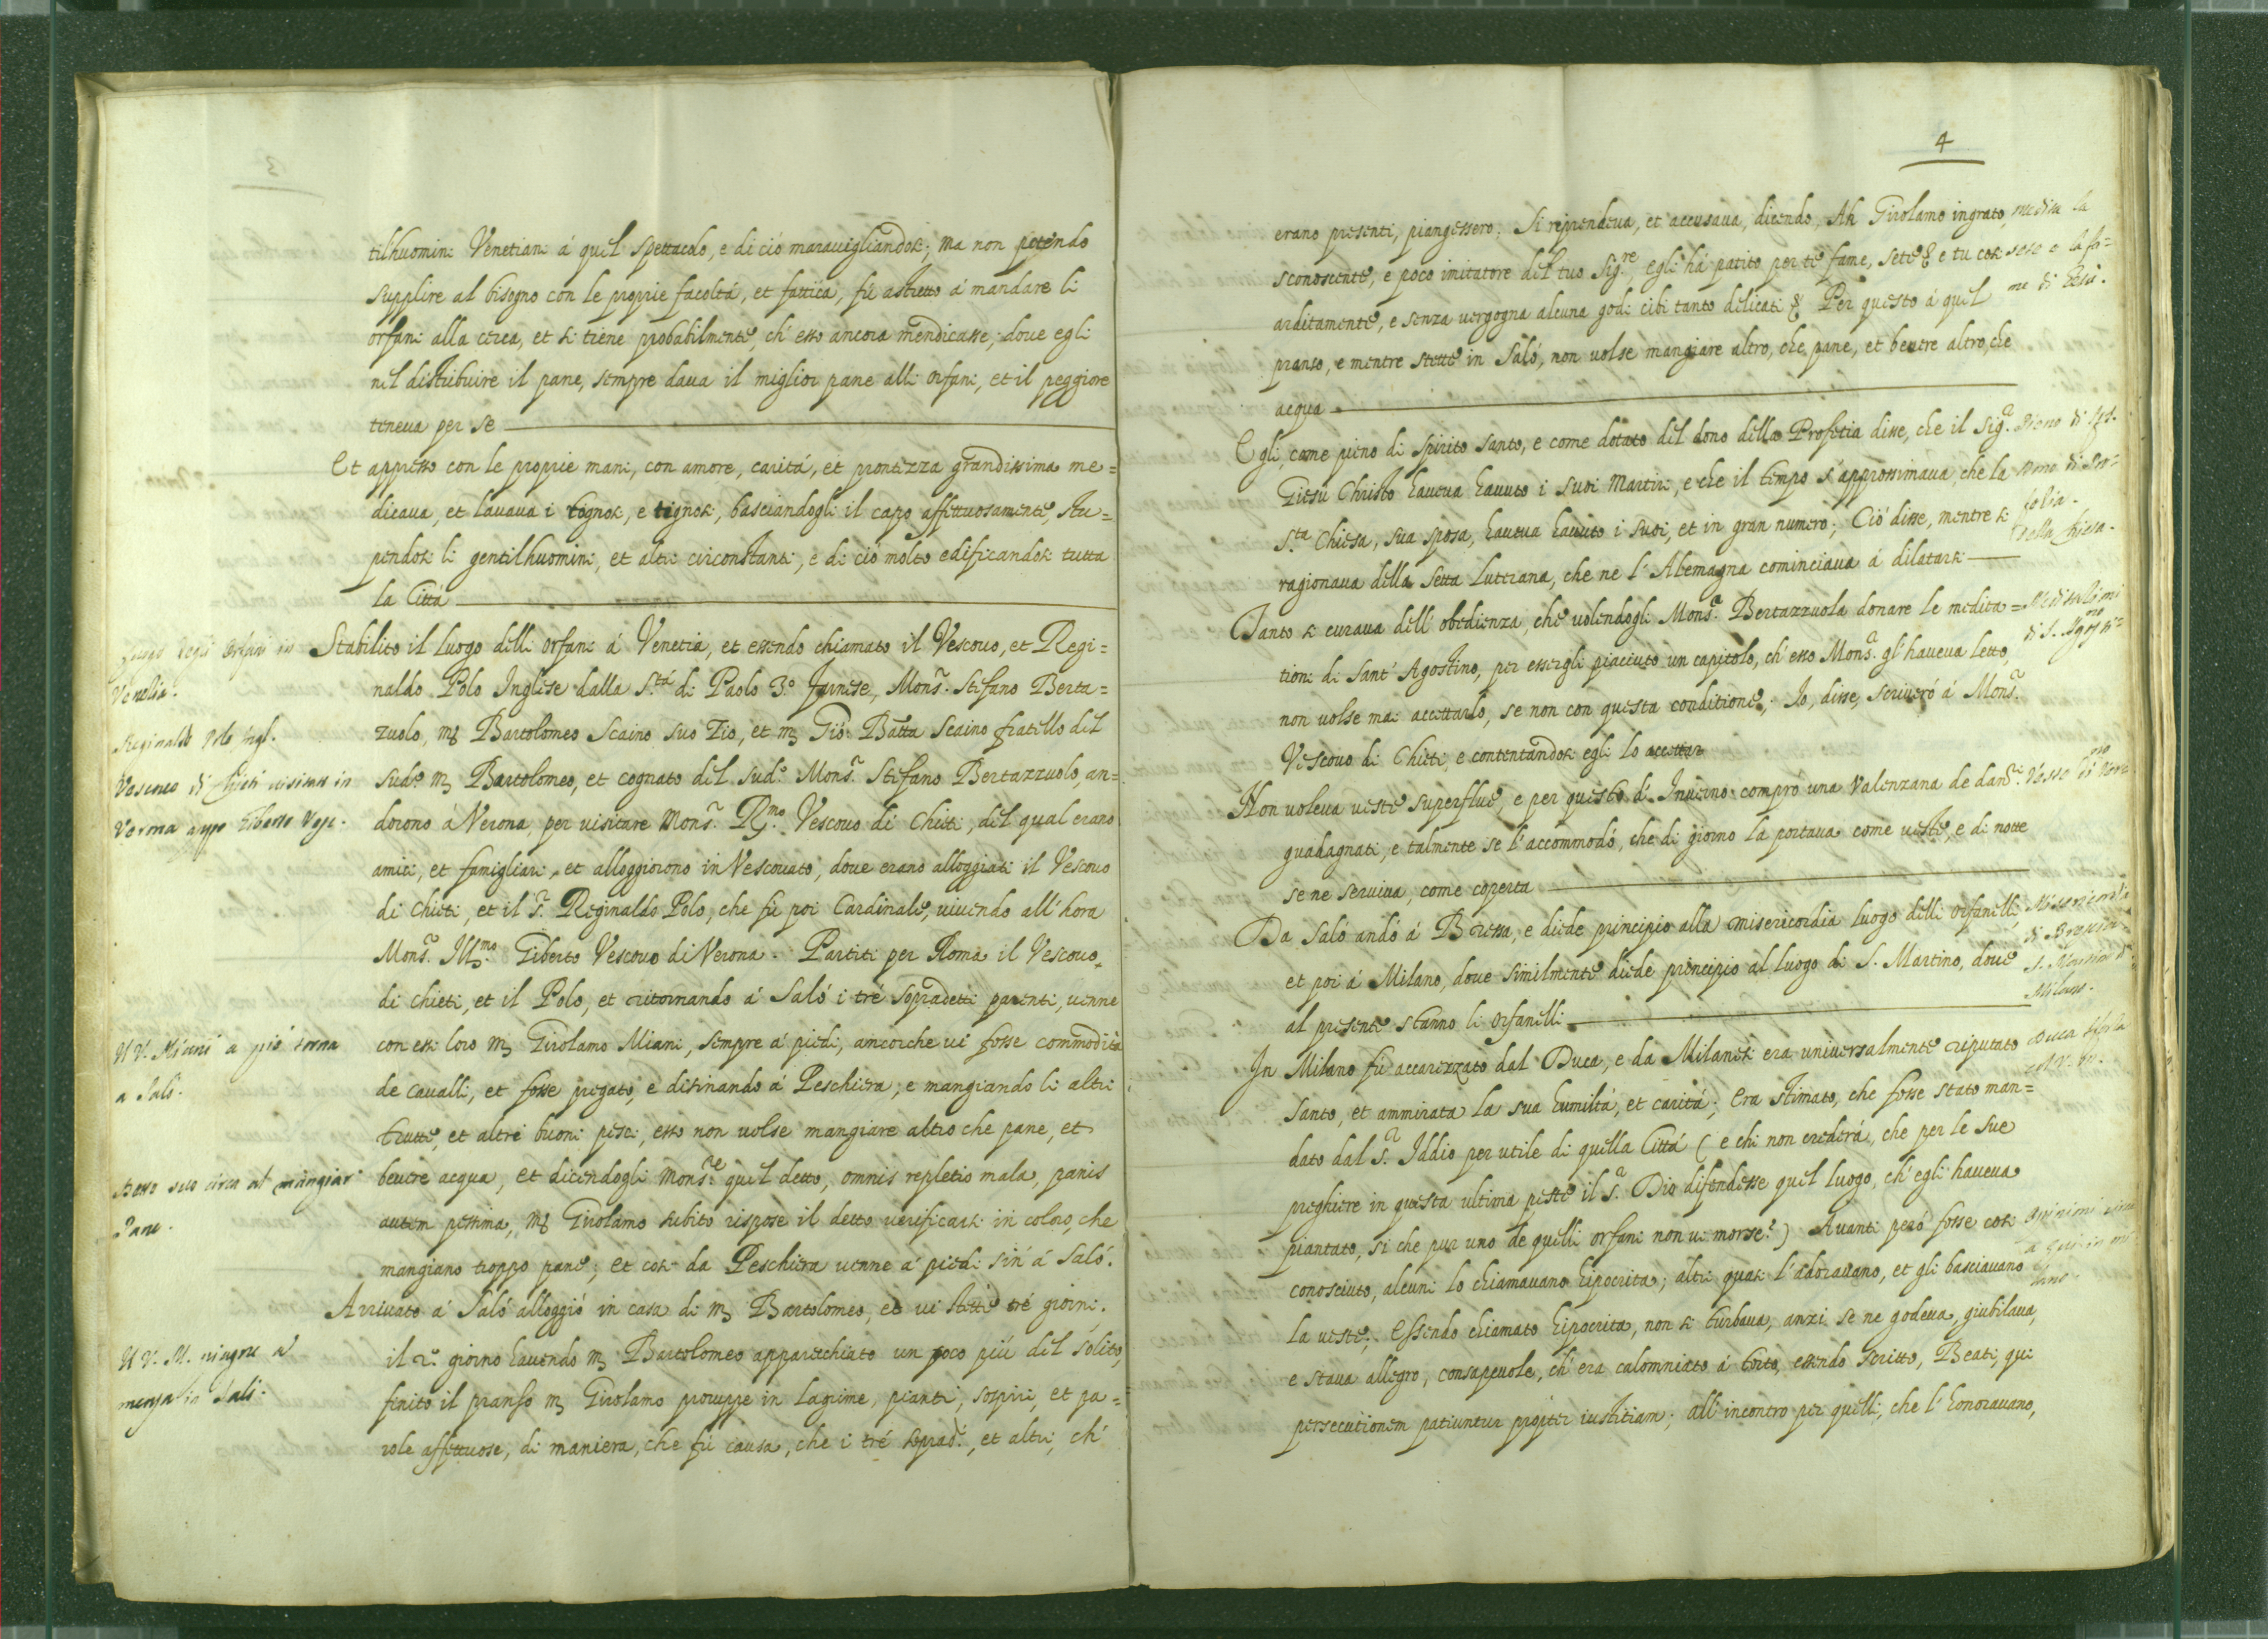 tilhuomini Venetiani á quel spettacolo, e di ció marauigliandosi; ma non potendo
supplire al bisogno con le proprie facoltá, et fattica, fú astretto á mandare li
orfani alla cerca, et si tiene probabilmente, ch' esso ancora mendicasse, doue egli
nel distribuire il pane, sempre daua il miglior pane alli orfani, et il peggiore
teneua per se
Et appresso con le proprie mani, con amore, caritá, et prontezza grandissima me=
dicaua, et lauaua i rognosi, e tignosi, basciandogli il capo affettuosamente, stu=
pendosi li gentilhuomini, et altri circonstanti, e di ció molto edificandosi tutta
la Cittá
luogo degli Orfani in
Venetia.
Stabilito il luogo delli orfani á Venetia, et essendo chiamato il Vescouo, et Regi=
naldo Polo Inglese dalla S.tá di Paolo 3.o Farnese, Mons.r Stefano Berta=
Reginaldo Polo Ingl.
Vescouo di Chieti visitati in
Verona appo Giberto Vesc.
zuolo, m. Bartolomeo Scaino suo Zio, et m. Gió: Batta Scaino fratello del
sud.o m. Bartolomeo, et cognato del sud.o Mons.r Stefano Bertazzuolo, an=
dorono á Verona, per visitare Mons.r R.mo Vescouo di Chieti, del qual erano
amici, et famigliari, et alloggiorono in Vescouato, doue erano alloggiati il Vescouo
di Chieti, et il S.r Reginaldo Polo, che fú poi Cardinale, uiuendo all' hora
Mons.r Ill.mo Giberto Vescouo di Verona. Partiti per Roma il Vescouo
di Chieti, et il Polo, et ritornando á Saló i tré sopradetti parenti, uenne
Il V. Miani a pié torna
a Saló.
con essi loro m. Girolamo Miani, sempre á piedi, ancorche ui fosse commoditá
de caualli, et fosse pregato, e disinando á Peschiera, e mangiando li altri
trutte, et altri buoni pesci, esso non uolse mangiare altro che pane, et
Detto suo circa al mangiar
Pane.
beuere acqua, et dicendogli Mons.re quel detto, omnis repletio mala, panis
autem pessima, m. Girolamo subito rispose il detto uerificarsi in coloro, che
mangiano troppo pane; et cosi da Peschiera uenne á piedi sin' á Saló.
Arriuato á Saló alloggió in casa di m. Bartolomeo, et ui stette tré giorni.
Il V. M. piagne a
mensa in Saló.
il 2.o giorno hauendo m. Bartolomeo apparecchiato un poco piú del solito,
finito il pranso m. Girolamo proruppe in lagrime, pianti, sospiri, et pa=
role affettuose, di maniera, che fú causa, che i tré soprad.i, et altri, ch'
4
erano presenti, piangessero. Si riprendeua, et accusaua, dicendo, Ah Girolamo ingrato, medita la
sconoscente, e poco imitatore del tuo Sig.re, egli há patito per té fame, sete & e tu cosi sete e la fa=
arditamente, e senza uergogna alcuna godi cibi tanto delicati & Per questo á quel me di Gesú.
pranso, e mentre stette in Saló, non uolse mangiare altro, che pane, et beuere altro, che
acqua
Egli, come pieno di spirito santo, e come dotato del dono della Profetia disse, che il Sig.r
Giesù Christo haueua hauuto i suoi Martiri, e che il tempo s' approssimaua, che la
S.ta Chiesa, sua sposa, haueua hauuto i suoi, et in gran numero; Ció disse, mentre si
della Chiesa.
ragionaua della Setta Luterana, che ne l' Alemagna cominciaua á dilatarsi
Tanto si curaua dell' obedienza, che uolendogli Mons.r Bertazzuola donare le medita=
tioni di Sant' Agostino, per essergli piaciuto un capitolo, ch' esso Mons.r gl' haueua letto,
non uolse mai accettarlo, se non con questa conditione; Io, disse, scriueró á Mons.r
Vescouo di Chieti, e contentandosi egli lo accettar
Non uoleua ueste superflue, e per questo d' Inuerno compró una Valenzana de dan.ri
guadagnati, e talmente se l' accommodó, che di giorno la portaua come ueste, e di notte
se ne seruiua, come coperta
Da Saló andó á Bressa, e diede principio alla misericordia luogo delli orfanelli,
et poi á Milano, doue similmente diede principio al luogo di S. Martino, doue
al presente stanno li orfanelli
Milano.
In Milano fú accarezzato dal Duca, e da Milanesi era uniuersalmente riputato
Santo, et ammirata la sua humiltá, et caritá; Era stimato, che fosse stato man=
dato dal S.r Iddio per utile di quella Cittá (e chi non crederá, che per le sue
preghiere in questa ultima peste il S.r Dio difendesse quel luogo, ch' egli haueua
piantato, si che pur uno de quelli orfani non ui morse?) Auanti peró fosse cosi
conosciuto, alcuni lo chiamauano hipocrita; altri quasi l' adorauano, et gli basciauano
la ueste; Essendo chiamato hipocrita, non si turbaua, anzi se ne godeua, giubilaua,
e staua allegro, consapeuole, ch' era calomniato á torto, essendo scritto, Beati, qui
persecutionem patiuntur propter iustitiam; all' incontro per quelli, che l' honorauano,